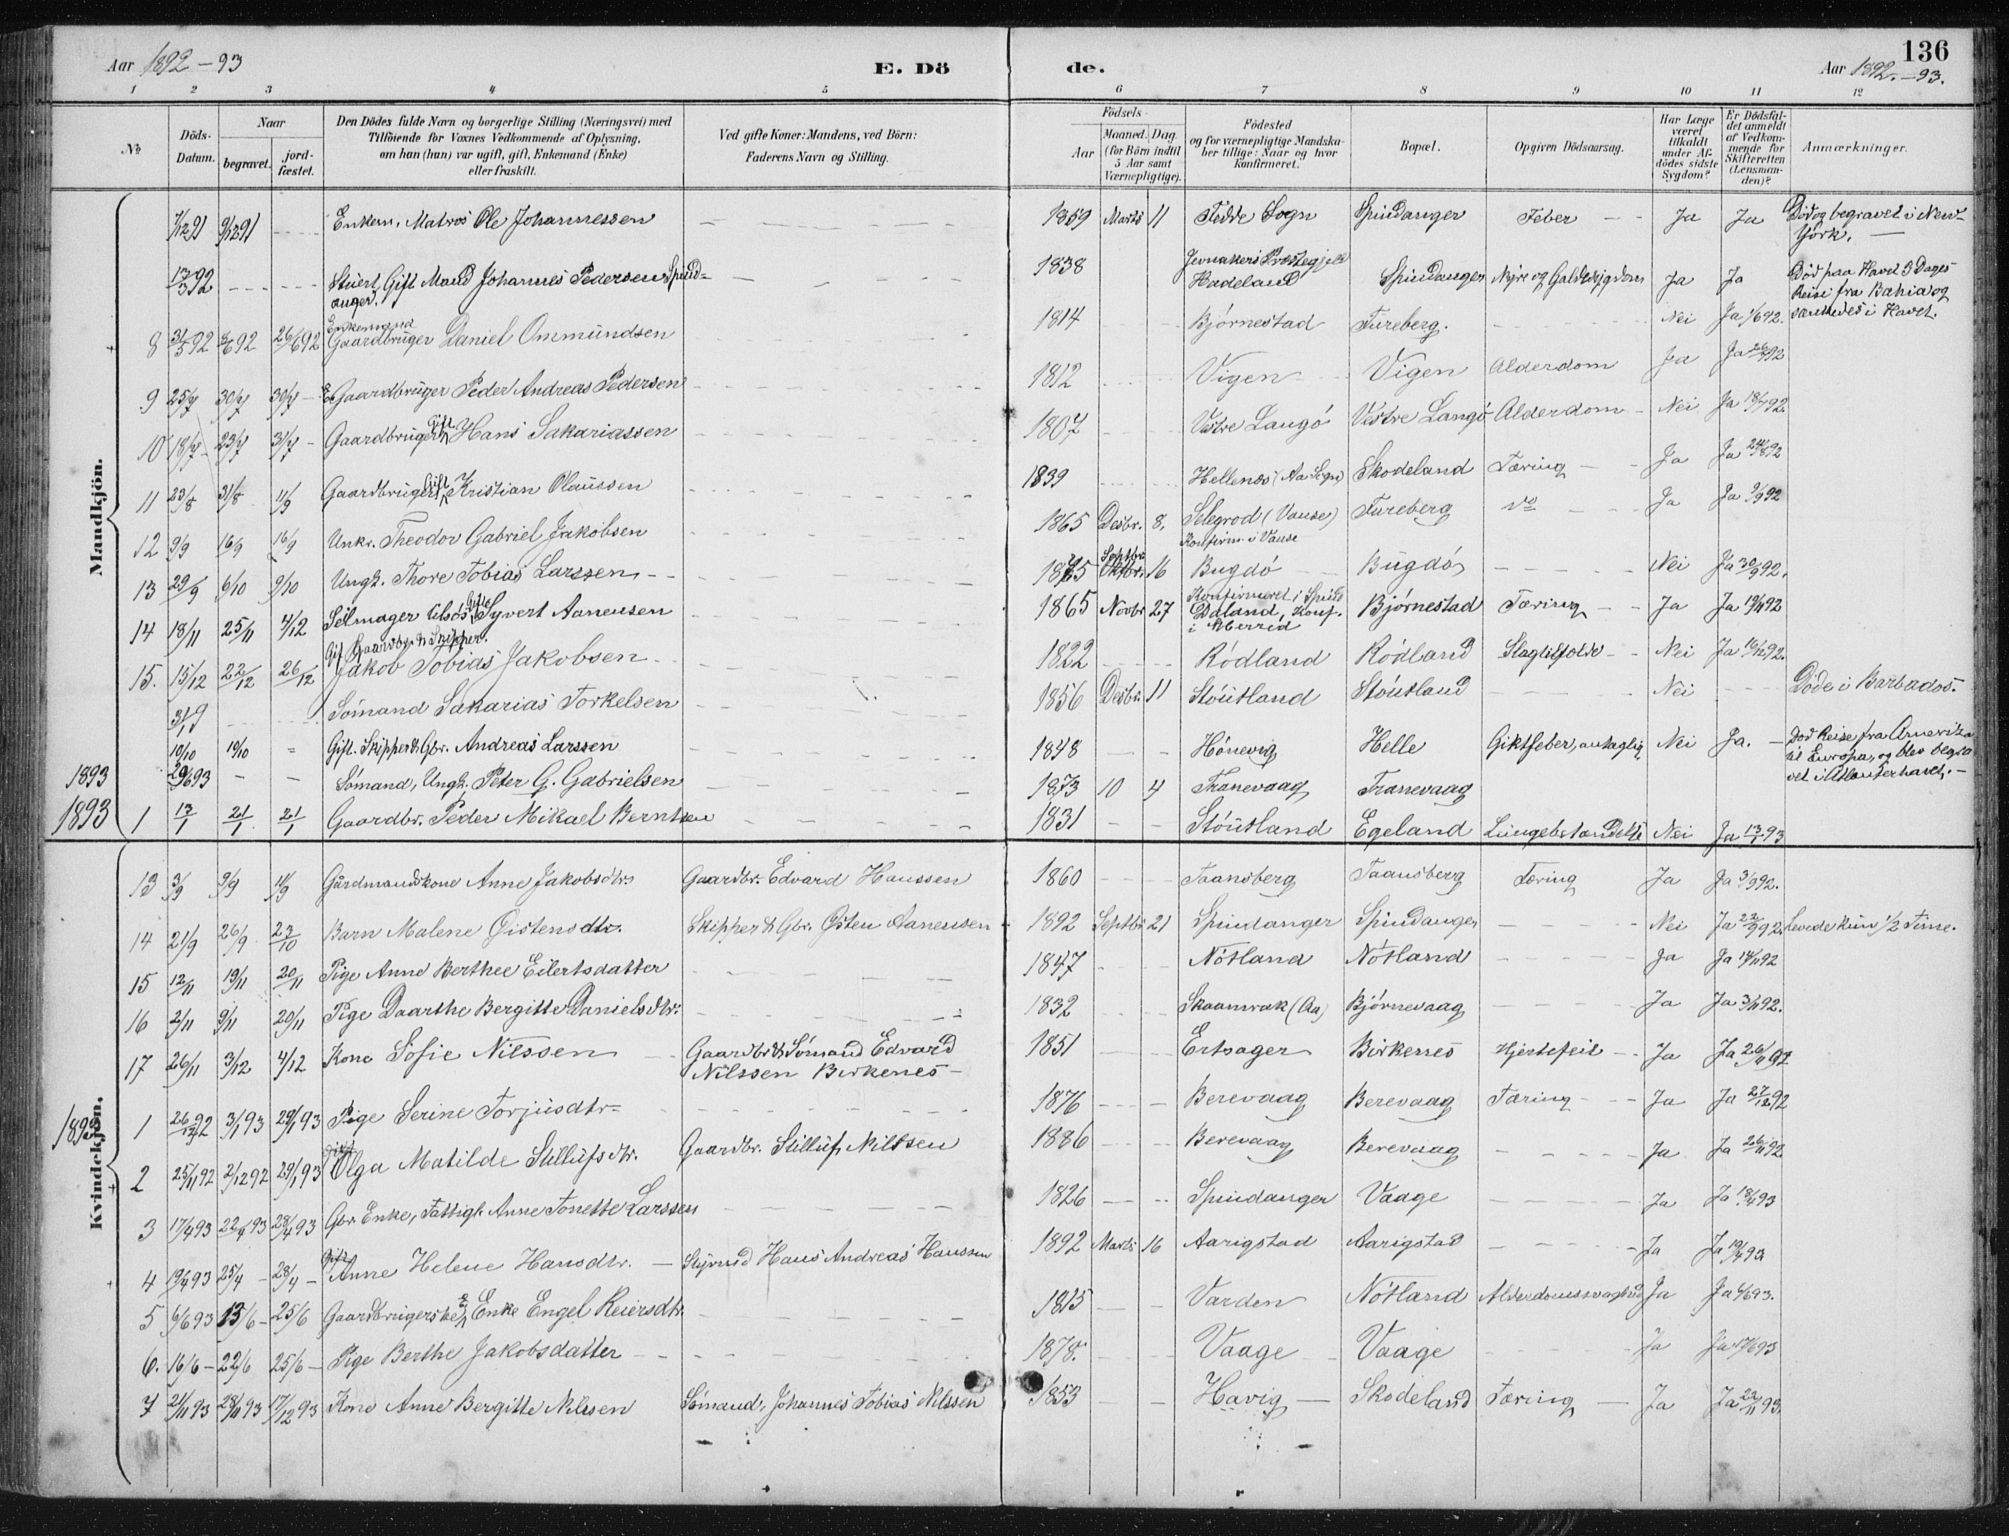 136
Aar 1892 – 93
E. Dö
de.
Aar 1892. – 93.
1 2 3 4 5 6 7 8 9 10 11 12
№
Döds-Datum.
Naar
begravet.
jord-fæstet.
Den Dödes fulde Navn og borgerlige Stilling (Næringsvei) med
Tilföiende for Voxnes Vedkommende af Oplysning,
om han (hun) var ugift, gift, Enkemand (Enke)
eller fraskilt.
Ved gifte Koner: Mandens, ved Börn:
Faderens Navn og Stilling.
Födsels
Aar
Maaned. Dag.
(for Börn indtil
5 Aar samt
Værnepligtige).
Födested
og for værnepligtige Mandska-
ber tillige: Naar og hvor
konfirmeret.
Bopæl.
Opgiven Dödsaarsag.
Har Læge
været
tilkaldt
under Af-
dödes sidste
Sygdom?
Er Dödsfal-
det anmeldt
af Vedkom-
mende for
Skifteretten
(Lensman-
den)?
Anmærkninger.
Mandkjön.
7/12 91 9/12 91 Enkem. Matros Ole Johannessen 1859 Marts 11 Fedde Sogn Spindanger Feber Ja Ja Död og begravet i New-
York.
13/3 92 Stuert, Gift Mand Johannes Pedersen Spind-
anger. 1838 Jevnakers Præstegjeld
Hadeland Spindanger Nyre og Ja Ja Död paa Havet 5 Dages
Reise fra Bahia og
sænkedes i Havet.
8 31/5 92 6/6 92 26/6 92 Enkemand
Gaardbruger Daniel Ommundsen 1814 Bjórnestad Tureberg. Nei Ja 1/6 92.
9 25/7 30/7 30/7 Gaardbruger Peder Andreas Pedersen 1812 Vigen Vigen Alderdom Ja Ja 26/7 92
10 18/7 23/7 31/7 Gaardbruger Gift Hans Sakariassen 1807 Vestre Langó Vestre Langó Alderdom Nei Ja 18/7 92.
11 23/8 31/8 11/9 Gaardbruger Gift Kristian Olaussen 1839 Hellenes (Aa Sogn) Skodeland Tæring Ja Ja 24/8 92
12 9/9 16/9 16/9 Unkr. Theodor Gabriel Jakobsen 1865 Desbr. 8. Selegrod (Vanse)
Konfirm i Vanse Tureberg do Ja Ja 9/9 92
13 29/9 6/10 9/10 Ungk. Thore Tobias Larssen 1875 Septbr. 16 Bugdó
Konfirmeret i Spind Bugdó Nei Ja 30/9 92.
14 18/11 25/11 4/12 Seilmager Gift Syvert Aanensen 1865 Novbr 27 Daland, Konf.
i Bjórnestad Tæring Ja Ja 19/11 92
15. 15/12 22/12 26/12 Gift Gaardbr. & Skipper.
Jakob Tobias Jakobsen 1822 Ródland Ródland Slagtilfælde Nei Ja 16/12 92.
31/9 Sómand Sakarias Torkelsen 1856 Desbr. 11 Stóutland Stóutland Nei Döde i Barbados.
10/10 10/10 Gift. Skipper & Gbr. Andreas Larssen 1848 Hónevig Helle Giktfeber, antaglig Nei Ja. Död Reise fra Amerika
til Europa, og blev begra
vet i Atlanterhavet.
1893 29/6 93 Sómand, Ungk. Peter G. Gabrielsen 1873 10 4 Tranevaag Tranevaag
1893 1 13/1 21/1 21/1 Gaardbr. Peder Mikael Berntsen 1831 Stóutland Egeland Lungebetændelse Nei Ja 13/1 93
Kvindekjön.
13 3/9 9/9 11/9 Gårdmandskone Anne Jakobsdtr. Gaardbr. Edvard Hanssen 1860 Taansberg Taansberg Tæring Ja Ja 3/9 92.
14 21/9 26/9 23/10 Barn Malene Öistensdtr. Skipper & Gbr. Østen Aanensen 1892 Septbr 21 Spindanger Spindanger Nei Ja 22/9 92. Levede kun 1/2 Time.
15 12/11 19/11 20/11 Pige Anne Berthee Eilertsdatter 1847 Nótland Nótland Ja Ja 14/11 92
16 2/11 9/11 20/11 Pige Daarthe Bergitte Danielsdtr: 1832 Skaamrak (Aa) Bjórnevaag Ja Ja 3/11 92.
17 26/11 3/12 4/12 Kone Sofie Nilssen Gaardbr & Sómand Edvard
Nilssen Birkenes 1851 Ertsager Birkenes Hjertefeil Ja Ja 26/11 92
1893 1 26/12 92 3/1 93 29/1 93 Pige Serine Torjusdtr 1876 Berevaag Berevaag Tæring Ja Ja 27/12 92
2 25/11 92 2/12 92 29/1 93 Olga Matilde Stillufsdtr. Gaardbr. Stilluf Nilssen 1886 Berevaag Berevaag Ja Ja 26/11 92
3 17/4 93 22/4 93 28/4 93 Gbr Enke, Fattigl. Anne Tonette Larssen 1826 Spindanger Vaage Ja Ja 18/4 93
4 19/4 93 25/4 28/4 Anne Helene Hansdtr. Styrmd Hans Andreas Hanssen 1892 Marts 16 Aarigstad Aarigstad Ja Ja 19/4 93
5 6/6 93 13/6 25/6 Gaardbrugerske, Enke Engel Reiersdtr. 1815 Varden Nótland Alderdomssvaghed Ja Ja 6/6 93.
6. 16/6 22/6 25/6 Pige Berthe Jakobsdatter 1878. Vaage Vaage Ja Ja 17/6 93
7 21/11 93 28/11 93 17/12 93 Kone Anne Bergitte Nilssen Sómand, Johannes Tobias Nilssen 1853 Havig Skodeland Tæring Ja Ja 22/11 93.